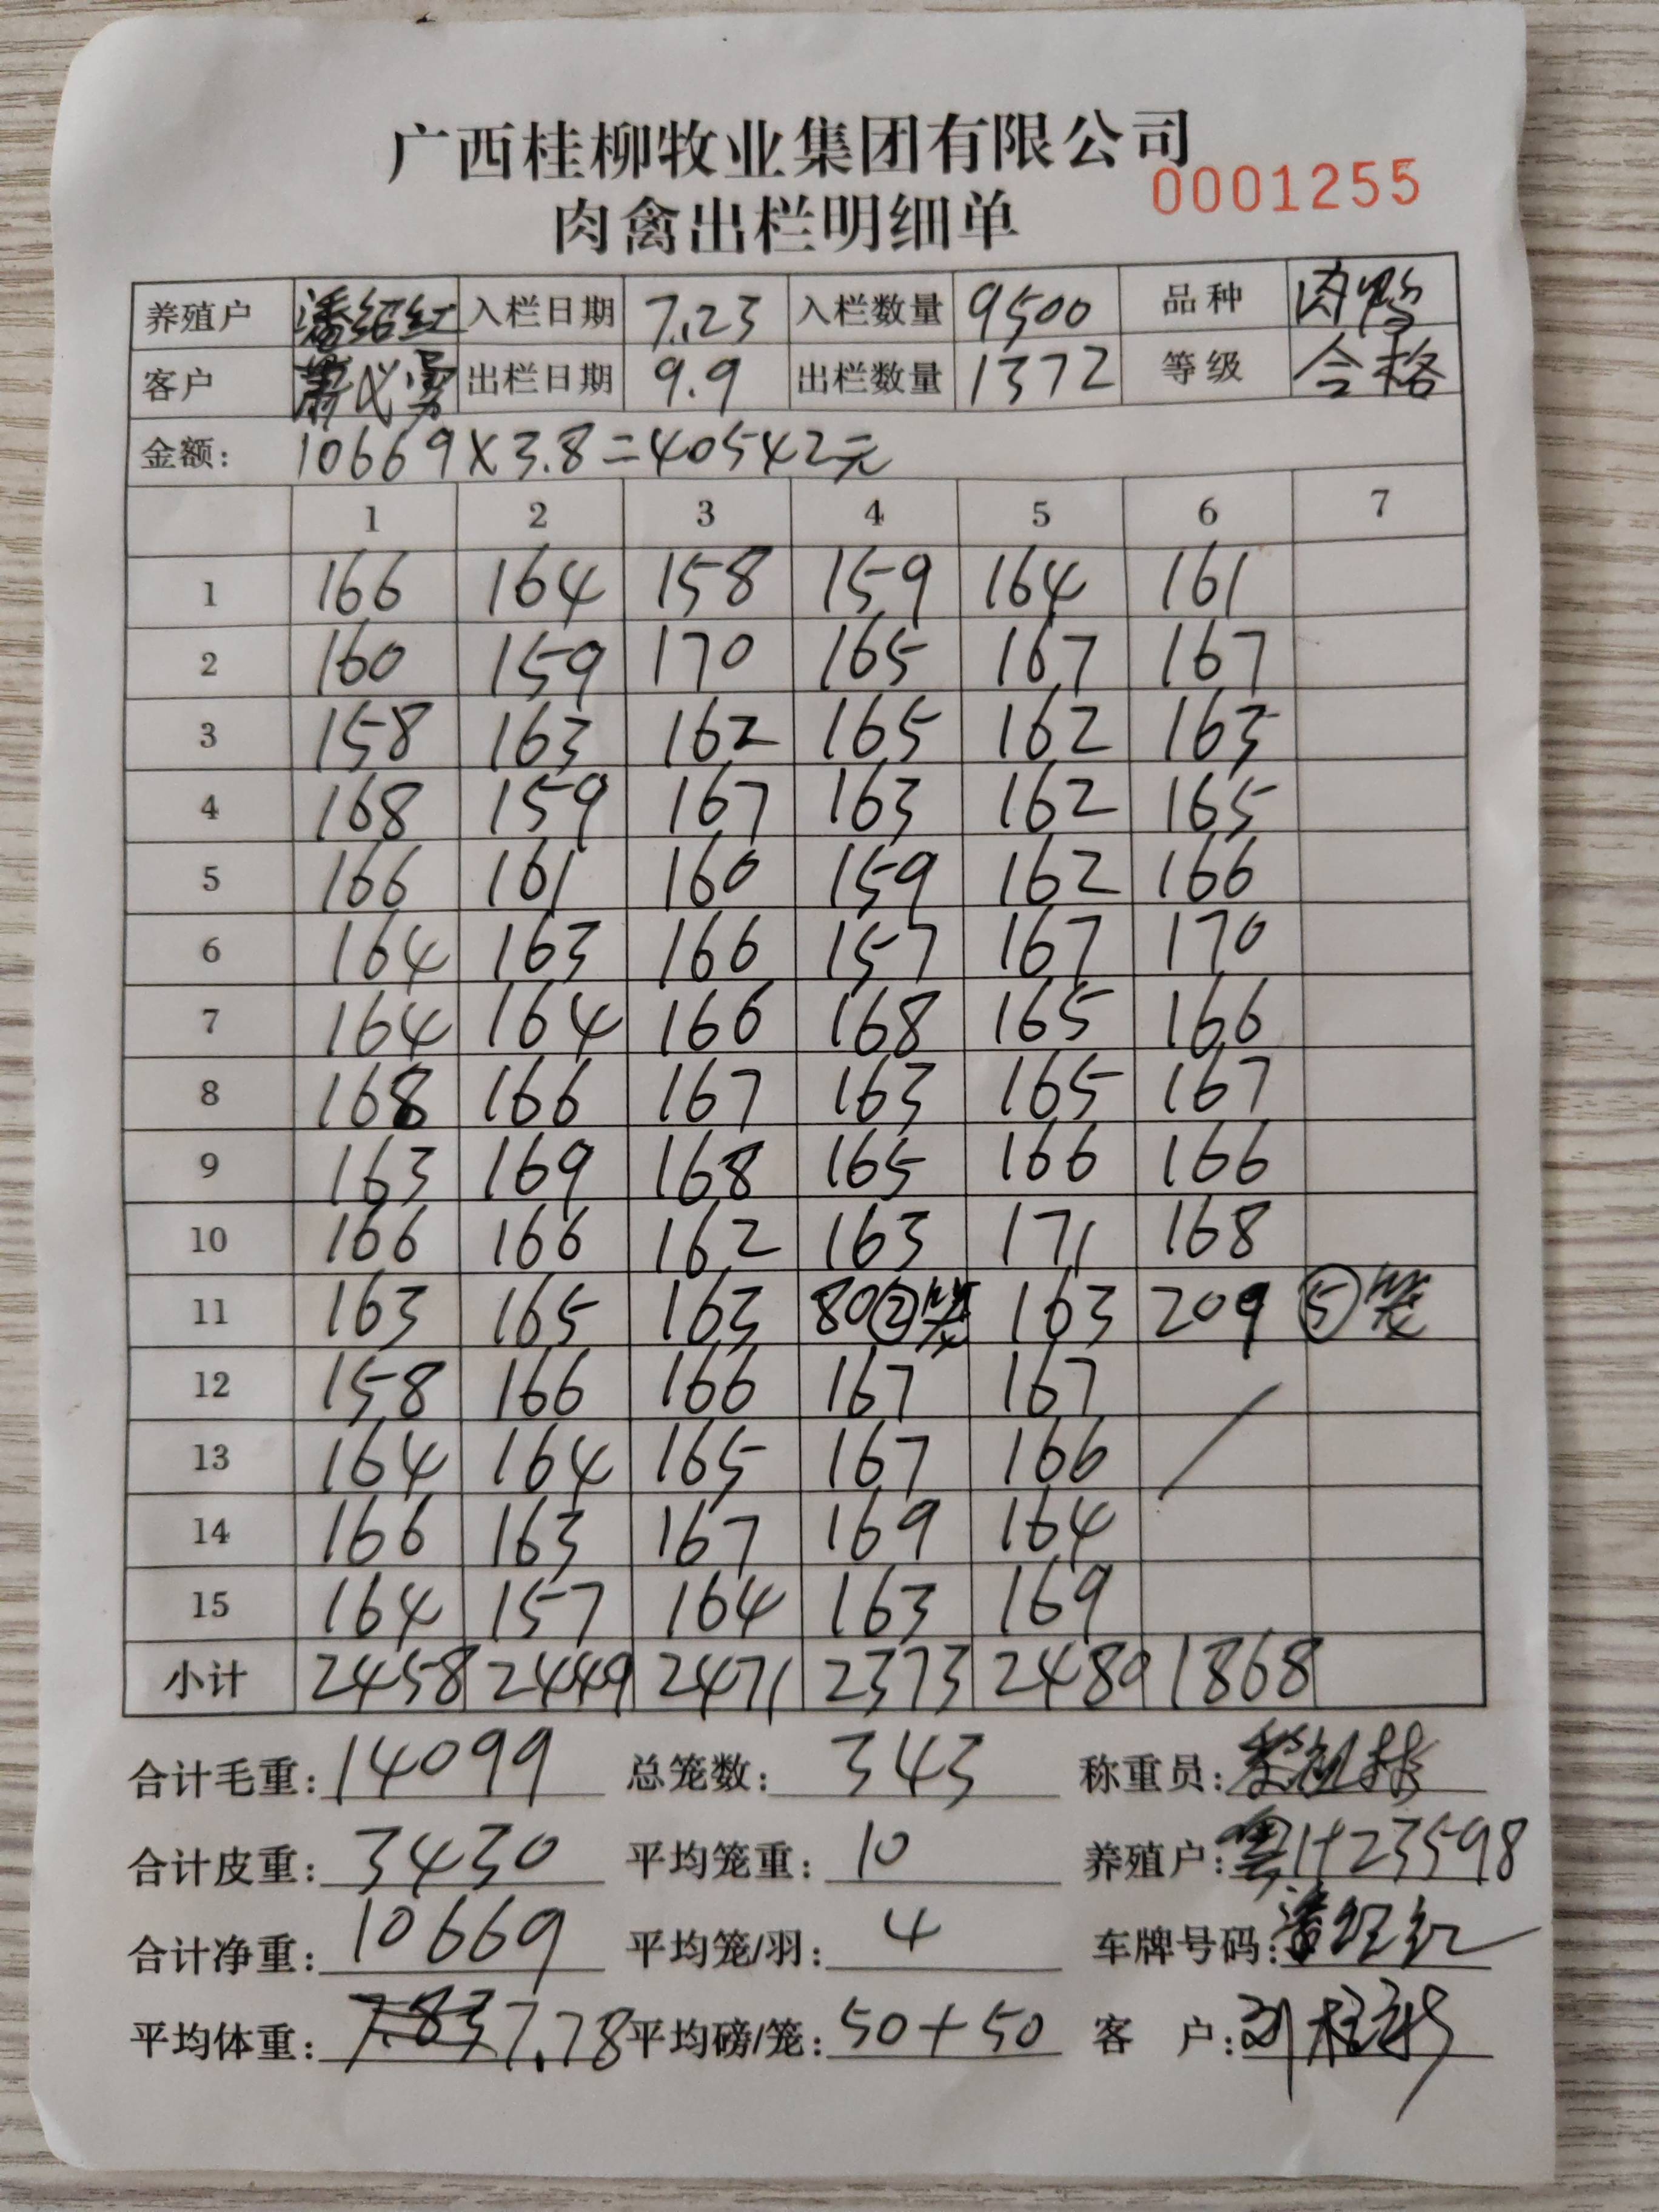 广西桂柳牧业集团有限公司
0001255
肉禽出栏明细单
养殖户 潘绍红 入栏日期 7.23 入栏数量 9500 品种 肉鸭
客户 出栏日期 9.9 出栏数量 1372 等级 合格
金额: 10669×3.8=40542元
1 2 3 4 5 6 7
1 166 164 158 159 164 161
2 160 159 170 165 167 167
3 158 163 162 165 162 163
4 168 159 167 163 162 165
5 166 161 160 159 162 166
6 164 163 166 157 167 170
7 164 164 166 168 165 166
8 168 166 167 163 165 167
9 163 169 168 165 166 166
10 166 166 162 163 171 168
11 163 165 163 80②笼 163 209 ⑤笼
12 158 166 166 167 167
13 164 164 165 167 166
14 166 163 167 169 164
15 164 157 164 163 169
小计 2458 2449 2471 2373 2480 1868
合计毛重: 14099 总笼数: 343 称重员:
合计皮重: 3430 平均笼重: 10 养殖户: 粤H23598
合计净重: 10669 平均笼/羽: 4 车牌号码:
平均体重: 7.83 7.78 平均磅/笼: 50+50 客 户: